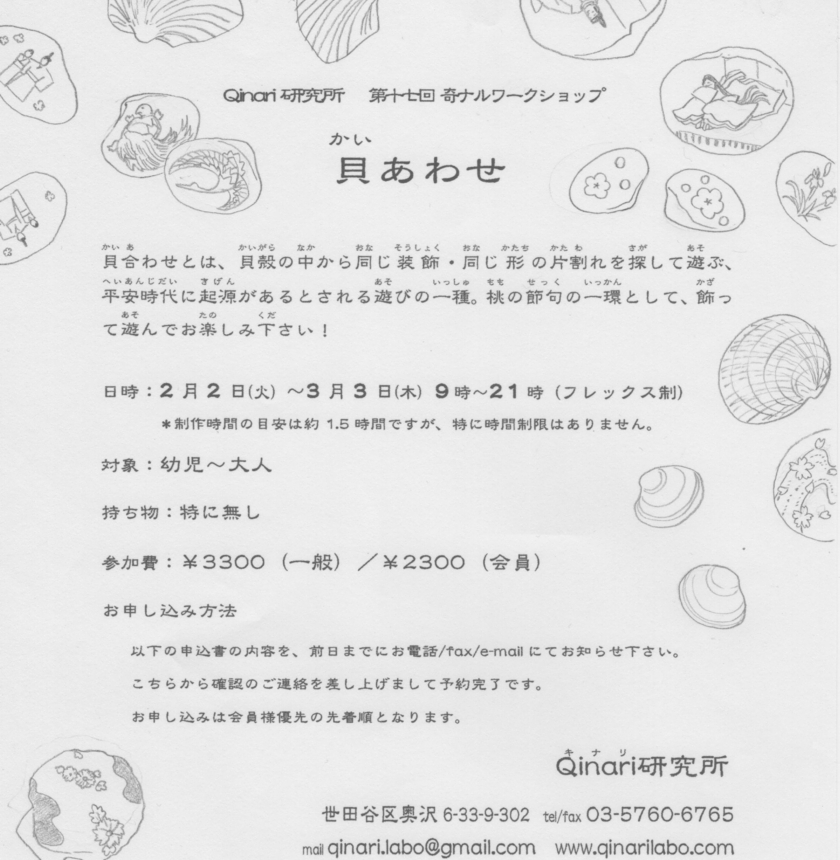 Qinari 研究所 第十七回 奇ナルワークショップ
かい
貝あわせ
かい あ かいがら なか おな そうしょく おな かたち かた わ さが あそ
貝合わせとは、貝殻の中から同じ装飾・同じ形の片割れを探して遊ぶ、
へいあんじだい きげん あそ いっしゅ もも せっく いっかん かざ
平安時代に起源があるとされる遊びの一種。桃の節句の一環として、飾っ
あそ たの くだ
て遊んでお楽しみ下さい！
日時：2 月 2 日(火) ～3 月 3 日(木) 9 時～21 時（フレックス制）
＊制作時間の目安は約 1.5 時間ですが、特に時間制限はありません。
対象：幼児～大人
持ち物：特に無し
参加費：￥3300（一般）／￥2300（会員）
お申し込み方法
以下の申込書の内容を、前日までにお電話/fax/e-mail にてお知らせ下さい。
こちらから確認のご連絡を差し上げまして予約完了です。
お申し込みは会員様優先の先着順となります。
キ ナ リ
Qinari研究所
世田谷区奥沢 6-33-9-302 tel/fax 03-5760-6765
mail qinari.labo@gmail.com www.qinarilabo.com